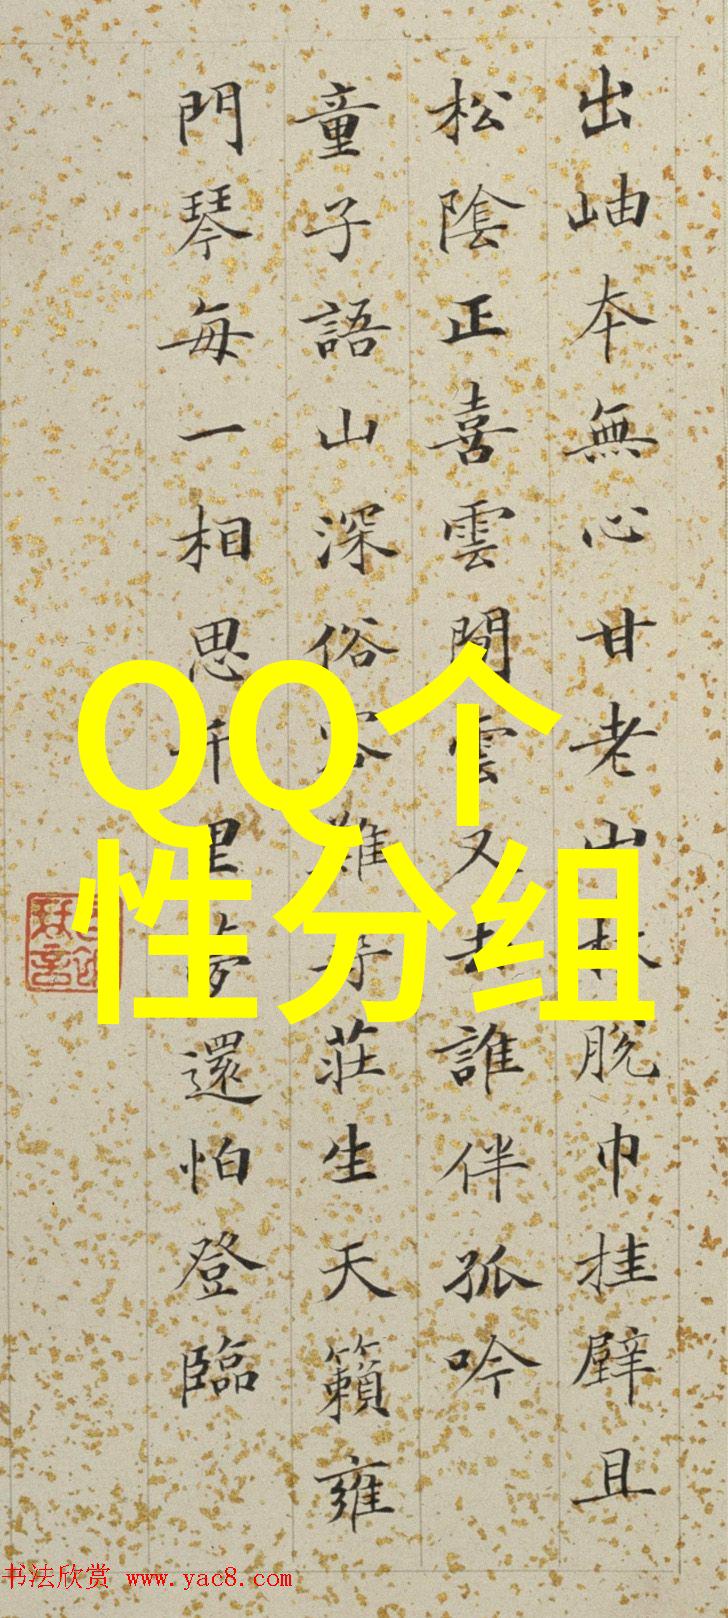 出岫本無心甘老山林脫巾挂壁且
松陰正喜雲閒雲又去誰伴孤吟
童子語山深俗客難尋莊生天籟雍
門琴每一相思千里夢還怕登臨
QQ个
性分组
书法欣赏 www.yac8.com